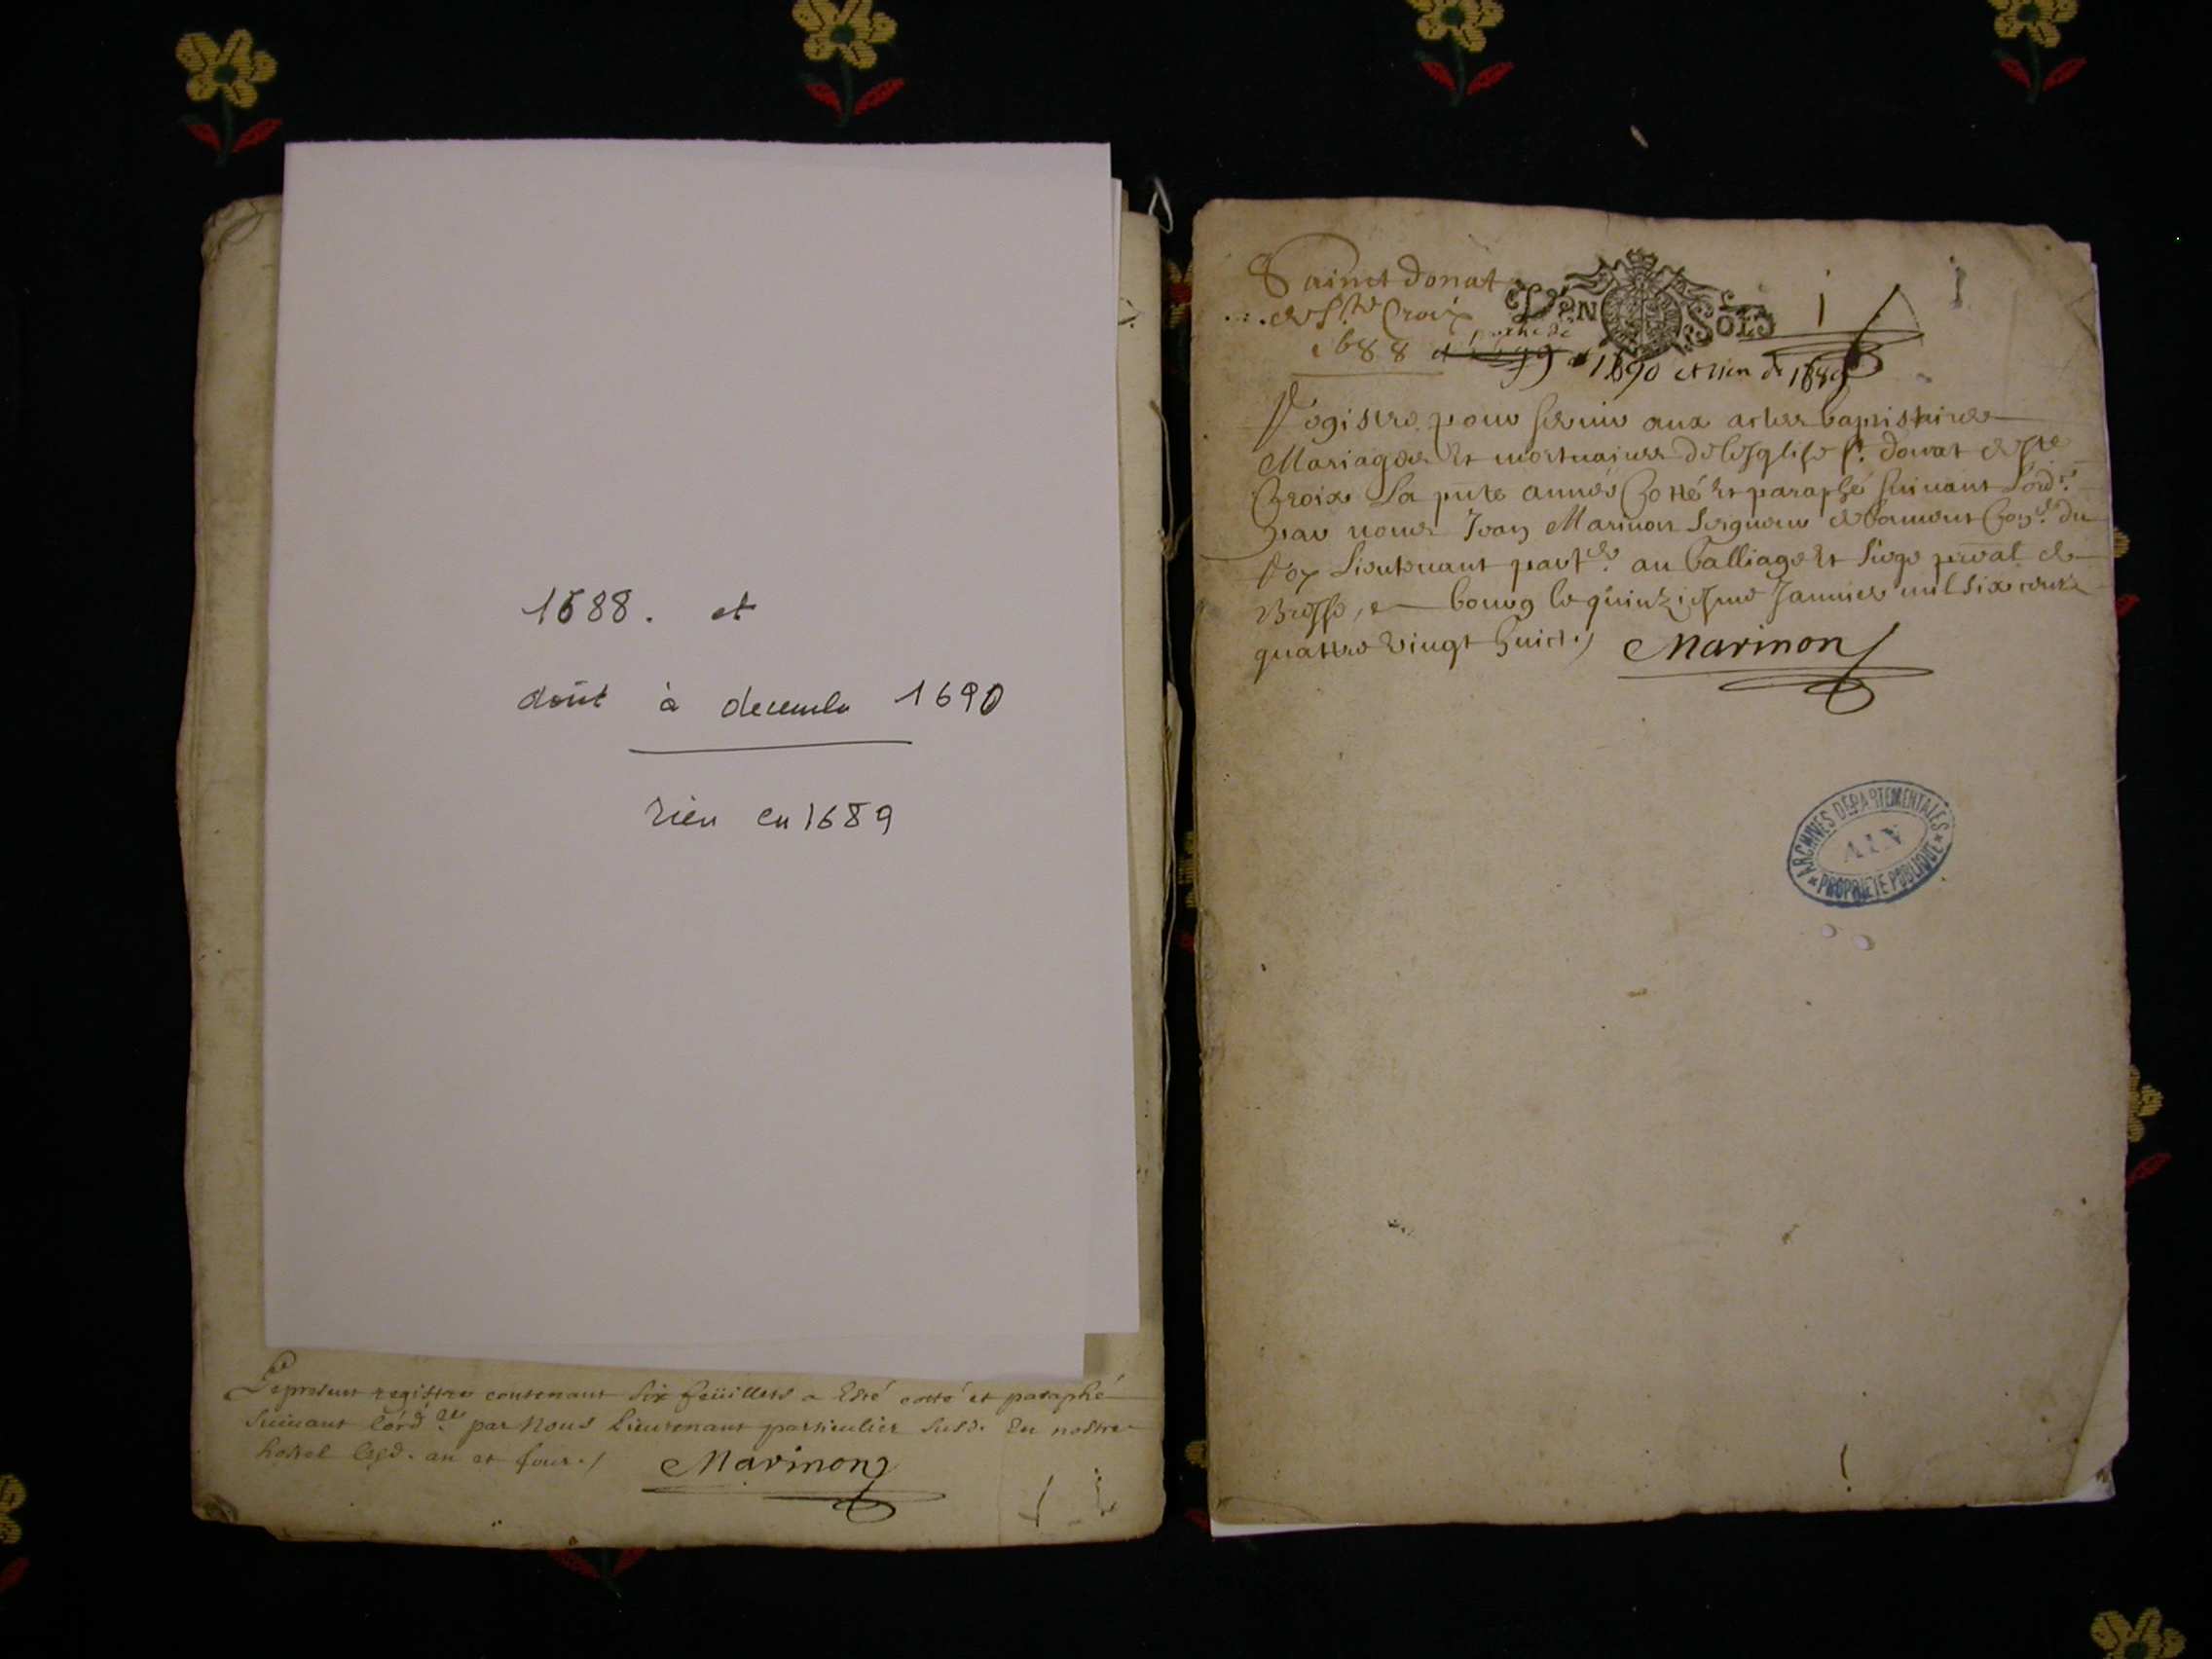 1688. et
août à decembre 1690
rien en 1689
Le present registre contenant six feüillets a Esté cotté et paraphé
suiuant l'ord.ce par Nous Lieutenant particulier susd. En nostre
hostel lesd. an et jour./
Marinon
Sainct Donat
de Ste Croix
DEN SOLS
1
1688
partie de
et 1690 et rien de 1689
Registre pour seruir aux actes baptistaires
Mariages Et mortuaires de l'esglise St. donat de Ste
Croix La pnte année Cotté Et paraphé suiuant l'ord.ce
par nous Jean Marinon seigneur de Con.er du
Roy Lieutenant part.er au balliage Et siege pñal de
Bresse, a bourg le quinziesme Januier mil six cents
quattre vingt huict./
Marinon
ARCHIVES DÉPARTEMENTALES
AIN
* PROPRIÉTÉ PUBLIQUE *